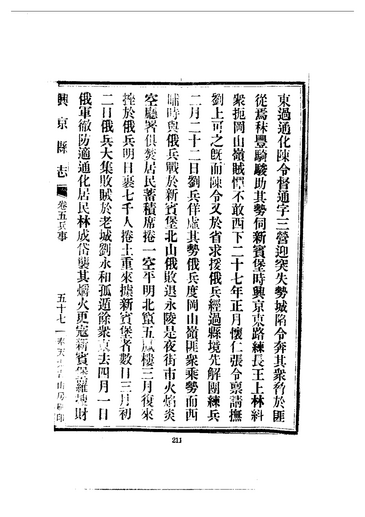 東過通化陳令督通字三營迎突失勢城陷令奔其衆脅於匪
從焉秣豐騎駿助其勢伺新賓堡時興京東路練長王上林糾
衆扼岡山嶺賊憚不敢西下二十七年正月懷仁張令稟請撫
劉上可之旣而陳令又於省求援俄兵經過縣境先解團練兵
二月二十二日劉兵佯虛其勢俄兵度岡山嶺匪衆乘勢而西
晡時與俄兵戰於新賓堡北山俄敗退永陵是夜街市火焰炎
空廳署俱焚居民蓄積席捲一空平明北竄五鳳樓三月復來
挫於俄兵明日裹七千人捲土重來據新賓堡者數日三月初
二日俄兵大集敗賊於老城劉永和孤遁餘衆東去四月一日
俄軍徹防適通化居民林成岱襲其燼火更寇新賓堡羅掘財
興京縣志 卷五兵事 五十七
211